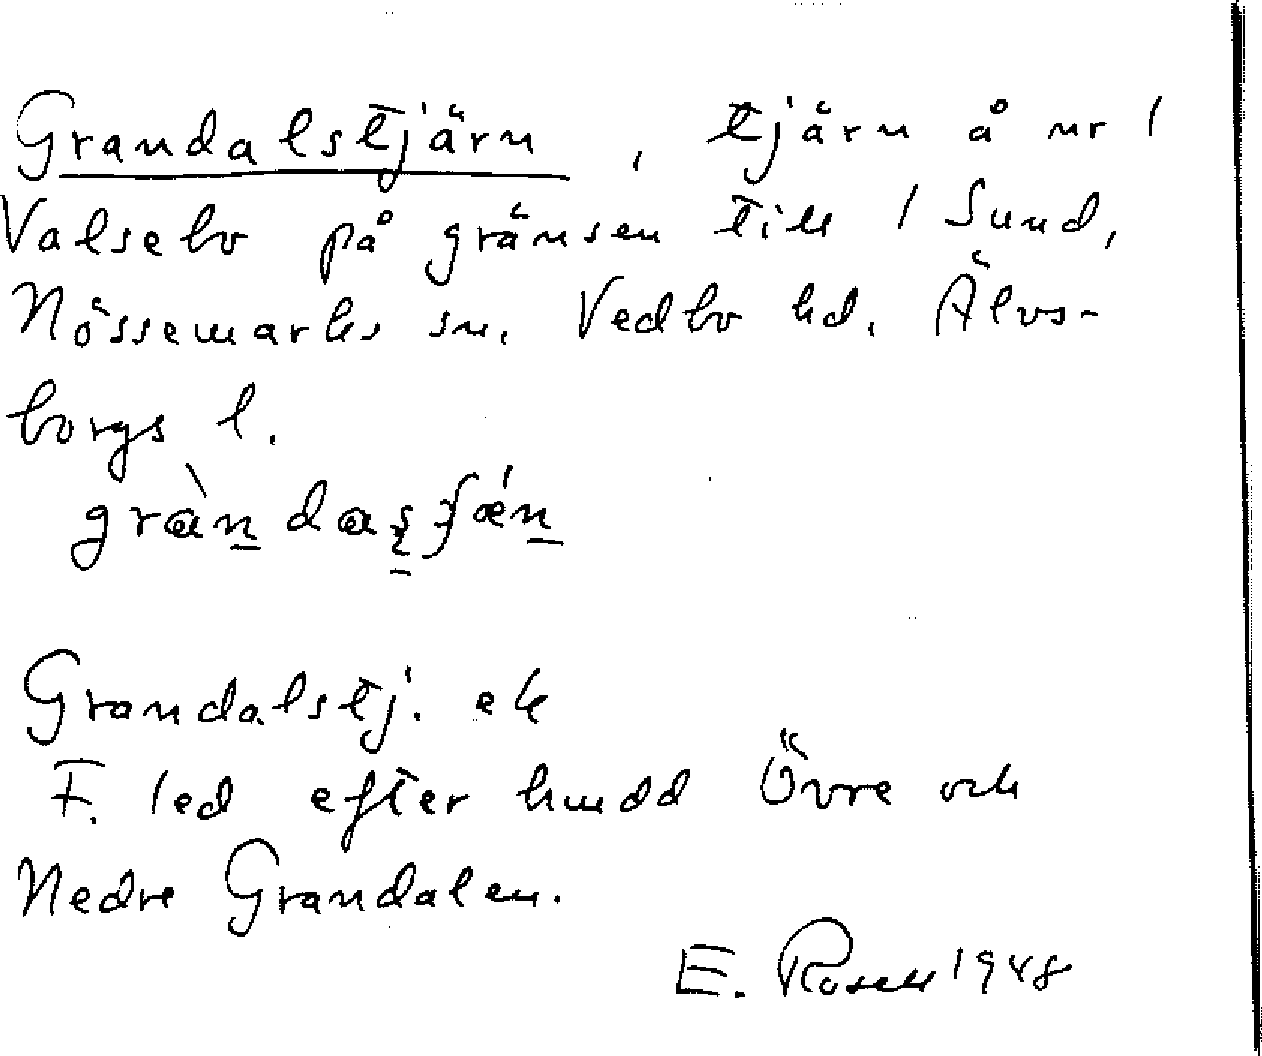 Grandalstjärn, tjärn å nr 1
Valsebo på gränsen till 1 Sund,
Nössemarks sn. Vedbo hd. Älvs-
borgs l.
Grandalstj. ek
F. led efter hmdd Övre och
Nedre Grandalen.
E. Rosell 1948